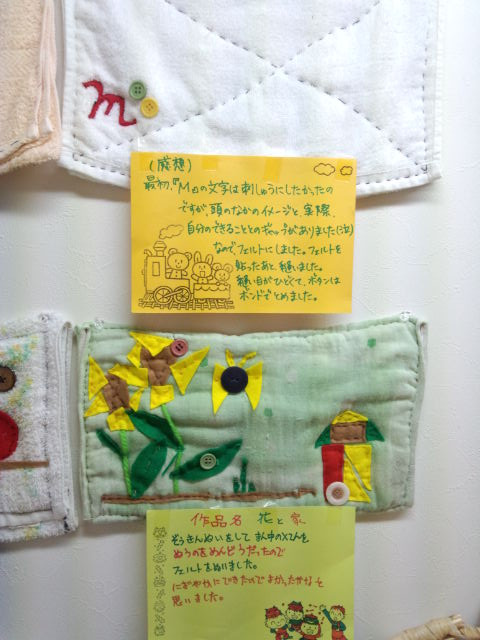 m
(感想)
最初、『M』の文字は刺しゅうにしたかったの
ですが、頭のなかのイメージと、実際、
自分のできることとのギャップがありました(泣)
なので、フェルトにしました。フェルトを
貼ったあと、縫いました。
縫い目がひどくて、ボタンは
ボンドでとめました。
作品名 花と家
ぞうきんぬいをして まん中の×てんを
ぬうのをめんどうだったので
フェルトをぬいました。
にぎやかにできたのでよかったかな と
思いました。